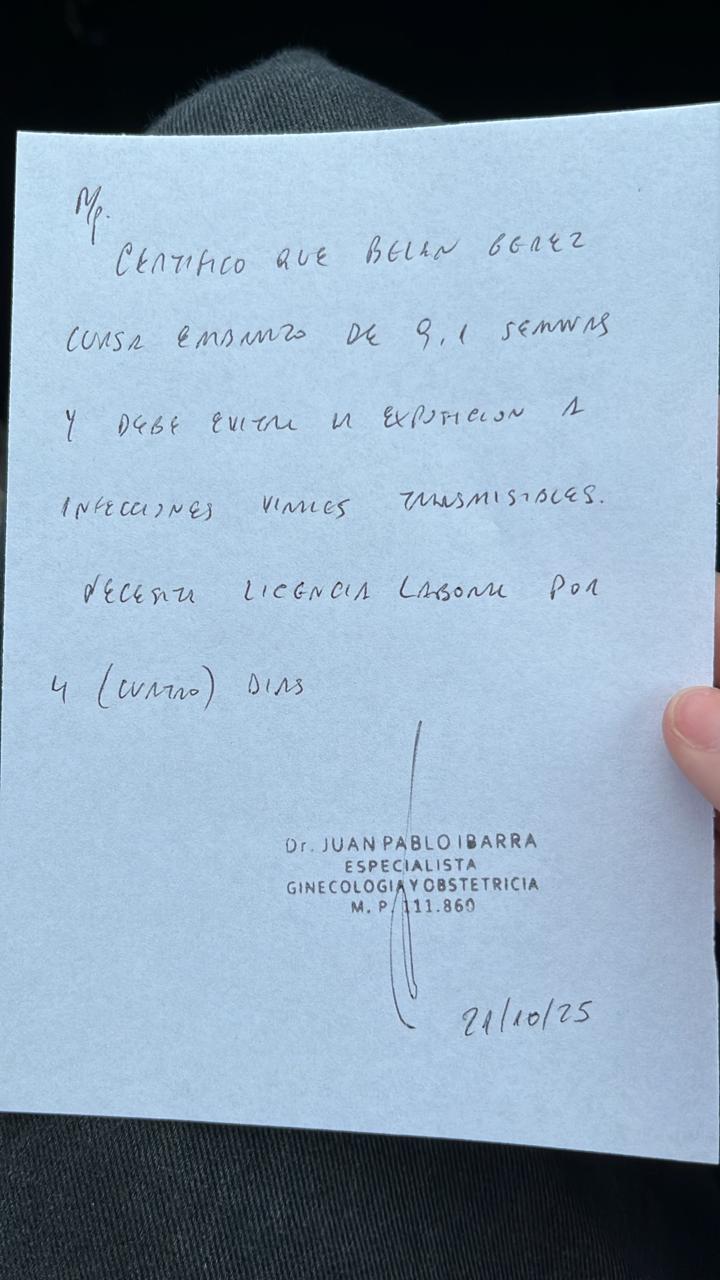 Rp.
CERTIFICO QUE BELEN GEREZ
CURSA EMBARAZO DE 9,1 SEMANAS
Y DEBE EVITAR LA EXPOSICION A
INFECCIONES VIRALES TRANSMISIBLES.
NECESITA LICENCIA LABORAL POR
4 (CUATRO) DIAS
Dr. JUAN PABLO IBARRA
ESPECIALISTA
GINECOLOGIA Y OBSTETRICIA
M. P. 111.860
21/10/25